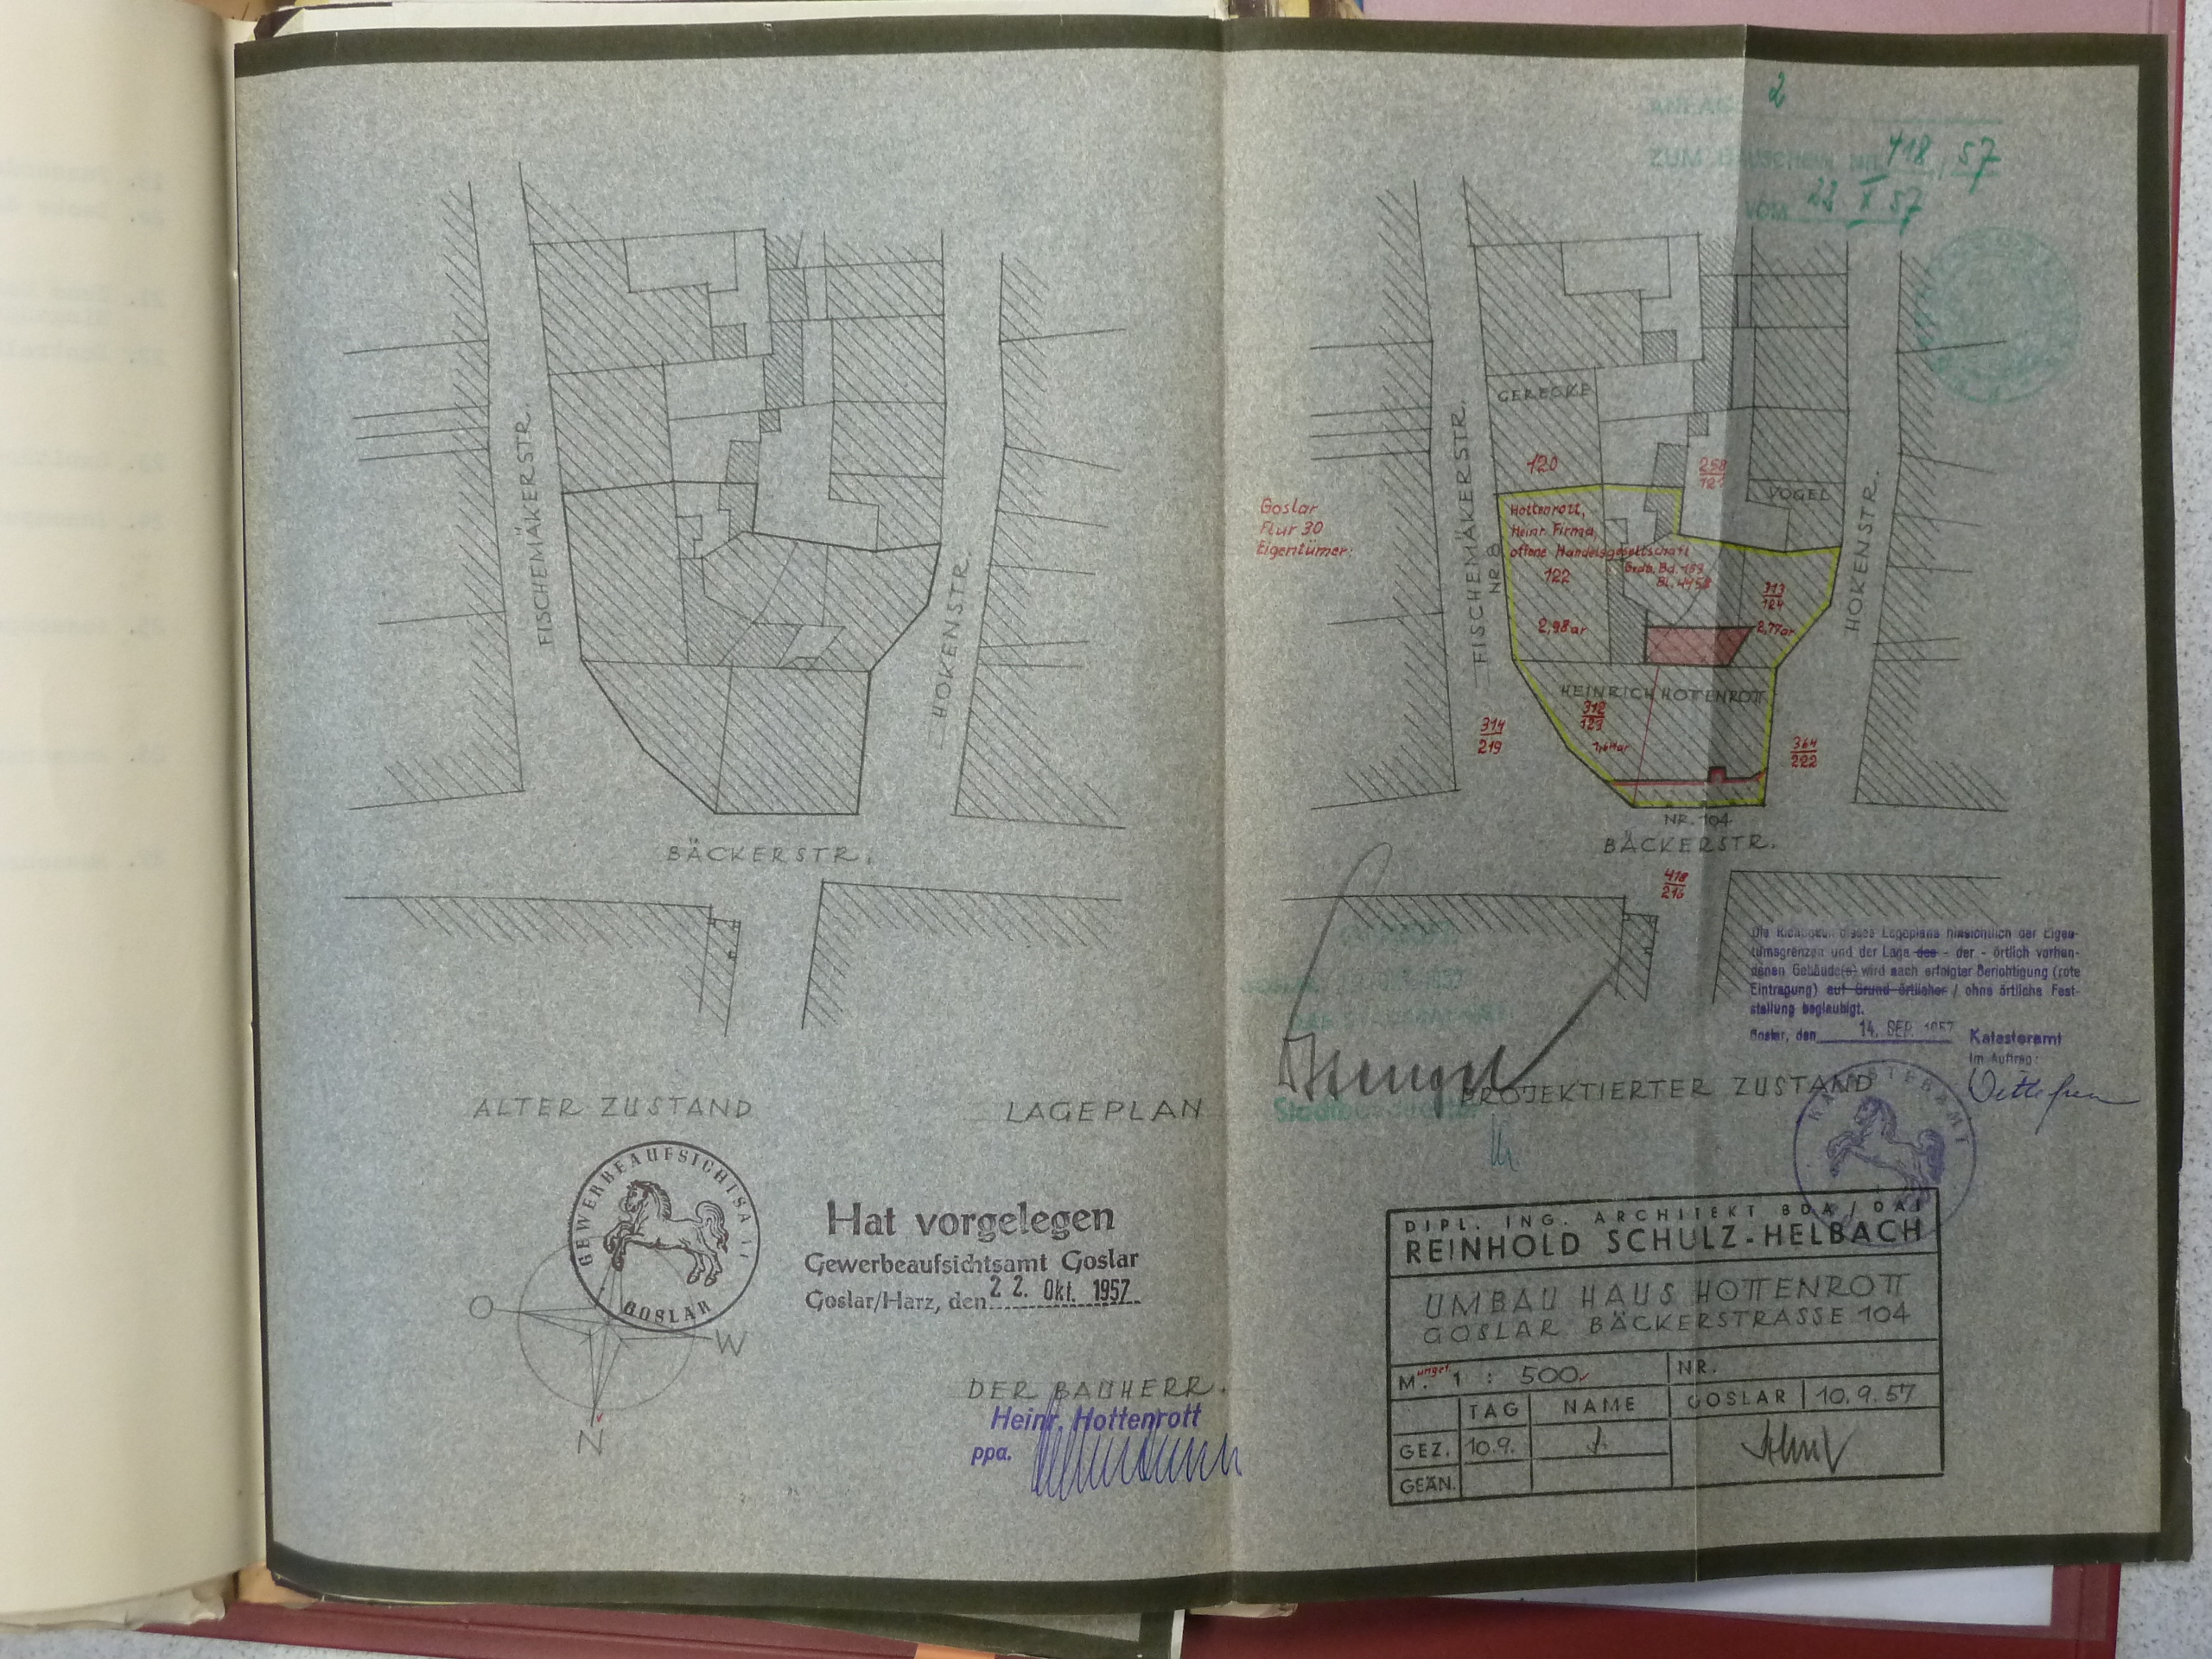 FISCHEMÄKERSTR.
HOKENSTR.
BÄCKERSTR.
ALTER ZUSTAND
LAGEPLAN
GEWERBEAUFSICHTSAMT
GOSLAR
Hat vorgelegen
Gewerbeaufsichtsamt Goslar
Goslar/Harz, den 22. Okt. 1957
O
W
N
DER BAUHERR.
Heinr. Hottenrott
ppa.
2
ZUM Bauschein Nr. 418 / 57
VOM 23 X 57
GERECKE
120
258
121
VOGEL
Goslar
Flur 30
Eigentümer:
Hottenrott,
Heinr. Firma,
offene Handelsgesellschaft
Grdb. Bd. 189
122
313
124
2,98 ar
2,77 ar
FISCHEMÄKERSTR.
NR. 8
HOKENSTR.
HEINRICH HOTTENROTT
312
123
314
219
364
222
NR. 104
BÄCKERSTR.
418
216
Die Richtigkeit dieses Lageplans hinsichtlich der Eigen-
tumsgrenzen und der Lage des - der - örtlich vorhan-
denen Gebäude(s) wird nach erfolgter Berichtigung (rote
Eintragung) auf Grund örtlicher / ohne örtliche Fest-
stellung beglaubigt.
Goslar, den 14. SEP. 1957
Katasteramt
Im Auftrag:
PROJEKTIERTER ZUSTAND
KATASTERAMT
DIPL. ING. ARCHITEKT BDA / DAI
REINHOLD SCHULZ-HELBACH
UMBAU HAUS HOTTENROTT
GOSLAR BÄCKERSTRASSE 104
M. ungef. 1 : 500
NR.
TAG NAME GOSLAR 10.9.57
GEZ. 10.9.
GEÄN.